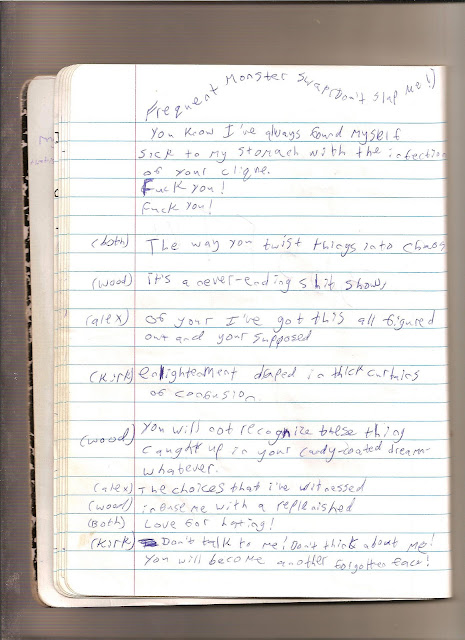 Frequent Monster Swap (Don't slap me!)
You know I've always found myself
sick to my stomach with the infection
of your clique.
Fuck you!
Fuck you!
(both) The way you twist things into chaos
(wood) it's a never-ending shit show,
(alex) of your I've got this all figured
out and your supposed
(Kirk) enlightenment draped in thick curtains
of confusion.
(wood) You will not recognize these thing
caught up in your candy-coated dream-
whatever.
(alex) The choices that i've witnessed
(wood) intense me with a replenished
(Both) Love for hating!
(Kirk) Don't talk to me! Don't think about me!
You will become another forgotten face!